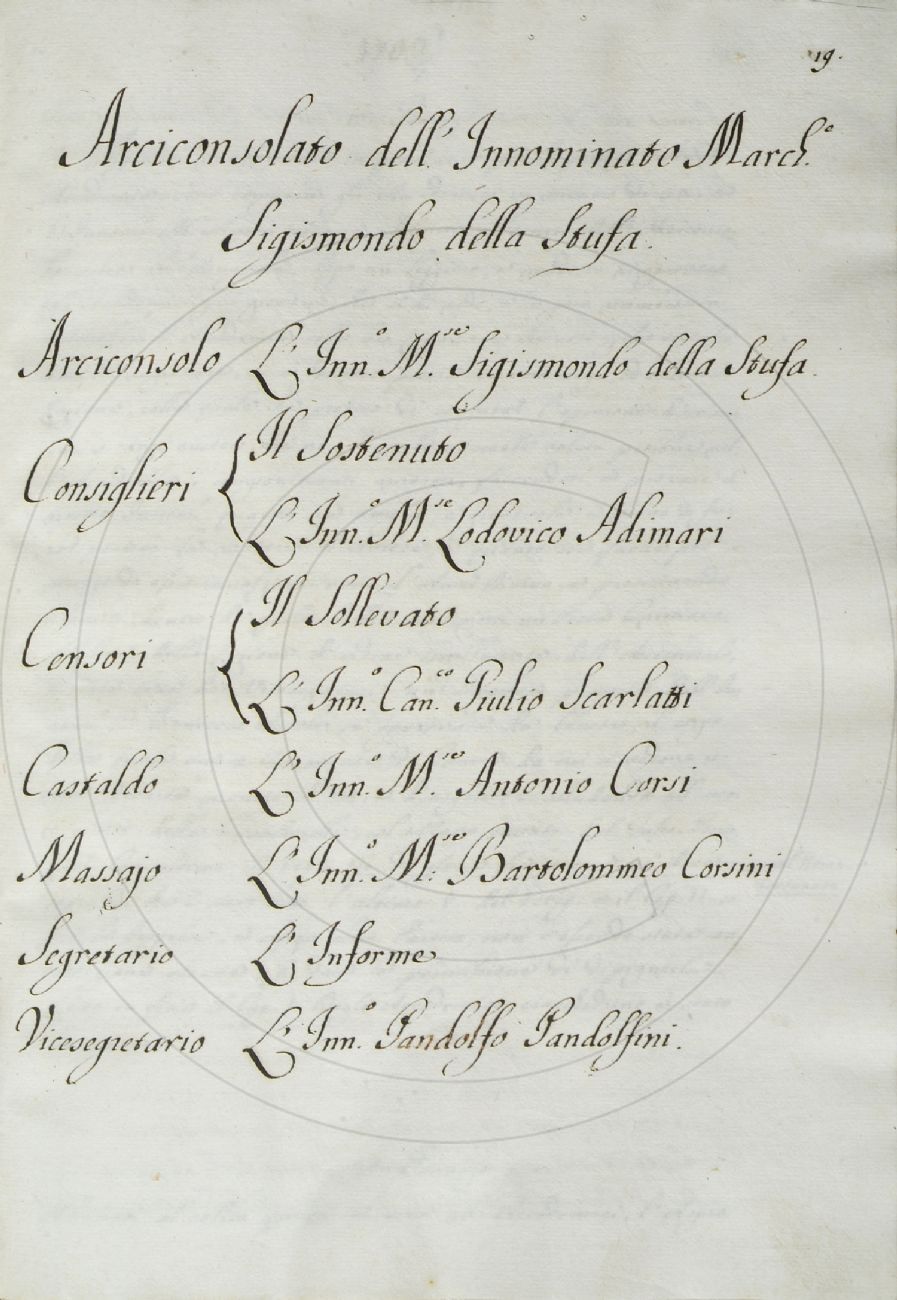 19.
Arciconsolato dell' Innominato March.º
Sigismondo della Stufa.
Arciconsolo L' Inn.º M.se Sigismondo della Stufa.
Consiglieri { Il Sostenuto
L' Inn.º M.se Lodovico Adimari
Censori { Il Sollevato
L' Inn.º Can.co Giulio Scarlatti
Castaldo L' Inn.º M.se Antonio Corsi
Massajo L' Inn.º M.se Bartolommeo Corsini
Segretario L' Informe
Vicesegretario L' Inn.º Pandolfo Pandolfini.